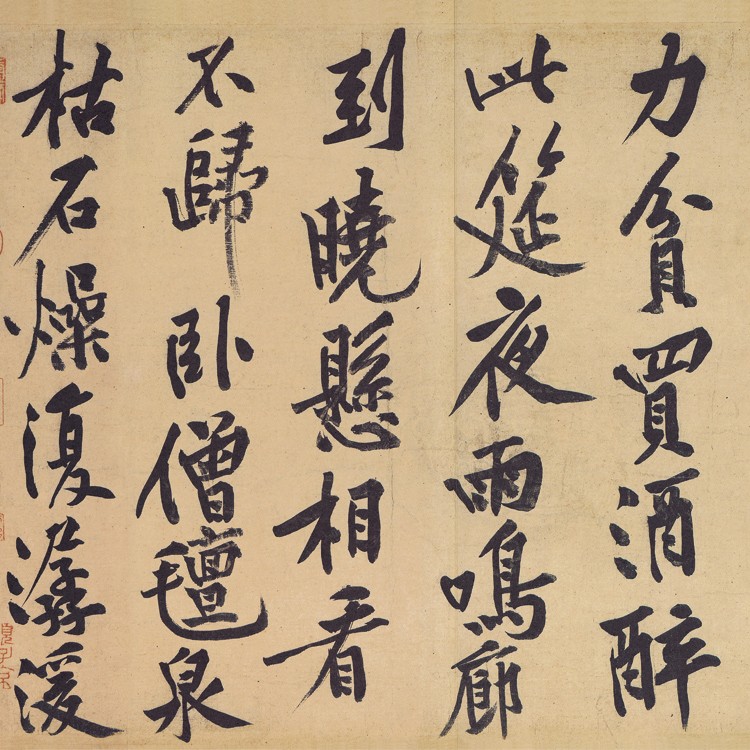 力貧買酒醉
此筵夜雨鳴廊
到曉懸相看
不歸卧僧氈泉
枯石燥復潺湲